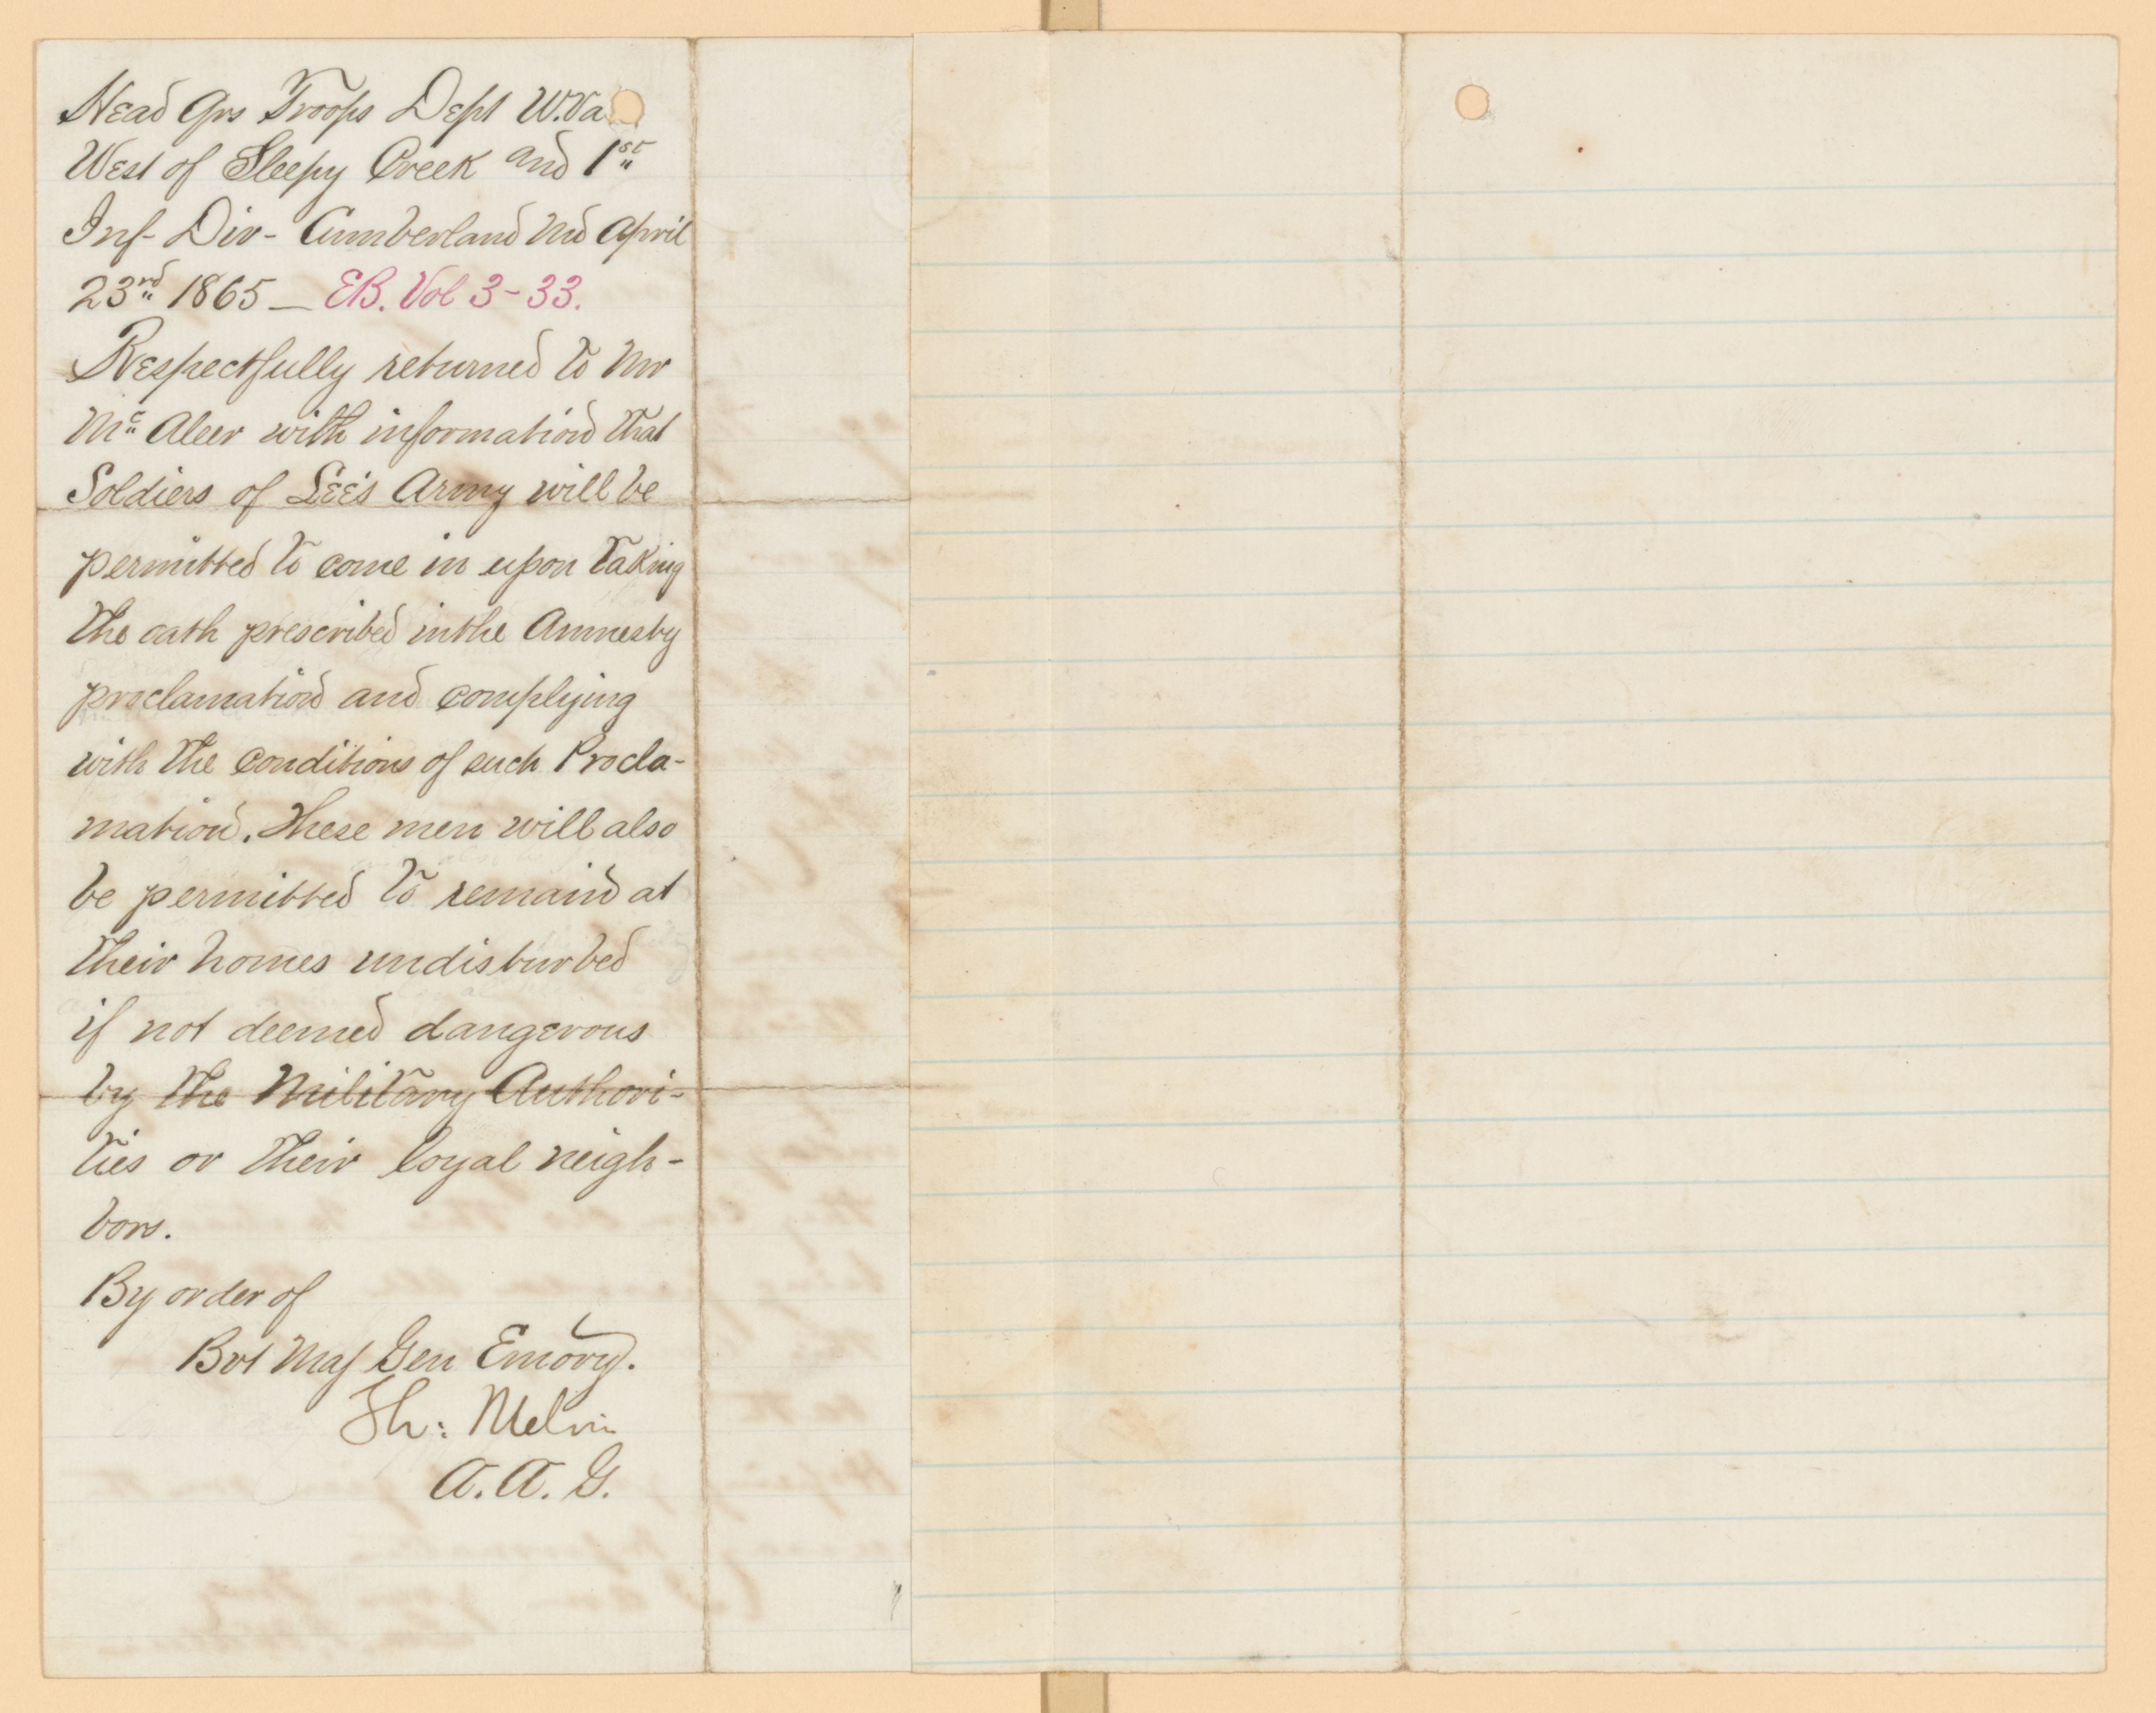 Head Qrs Troops Dept W.Va.
West of Sleepy Creek and 1st
Inf- Div- Cumberland Md April
23rd 1865 — EB. Vol 3-33.
Respectfully returned to Mr
Mc Aleer with information that
Soldiers of Lee's Army will be
permitted to come in upon taking
the oath prescribed in the Amnesty
proclamation and complying
with the conditions of such Procla-
mation. These men will also
be permitted to remain at
their homes undisturbed
if not deemed dangerous
by the Military Authori-
ties or their loyal neigh-
bors.
By order of
Bvt Maj Gen Emory.
Th: Melvin
A. A. G.